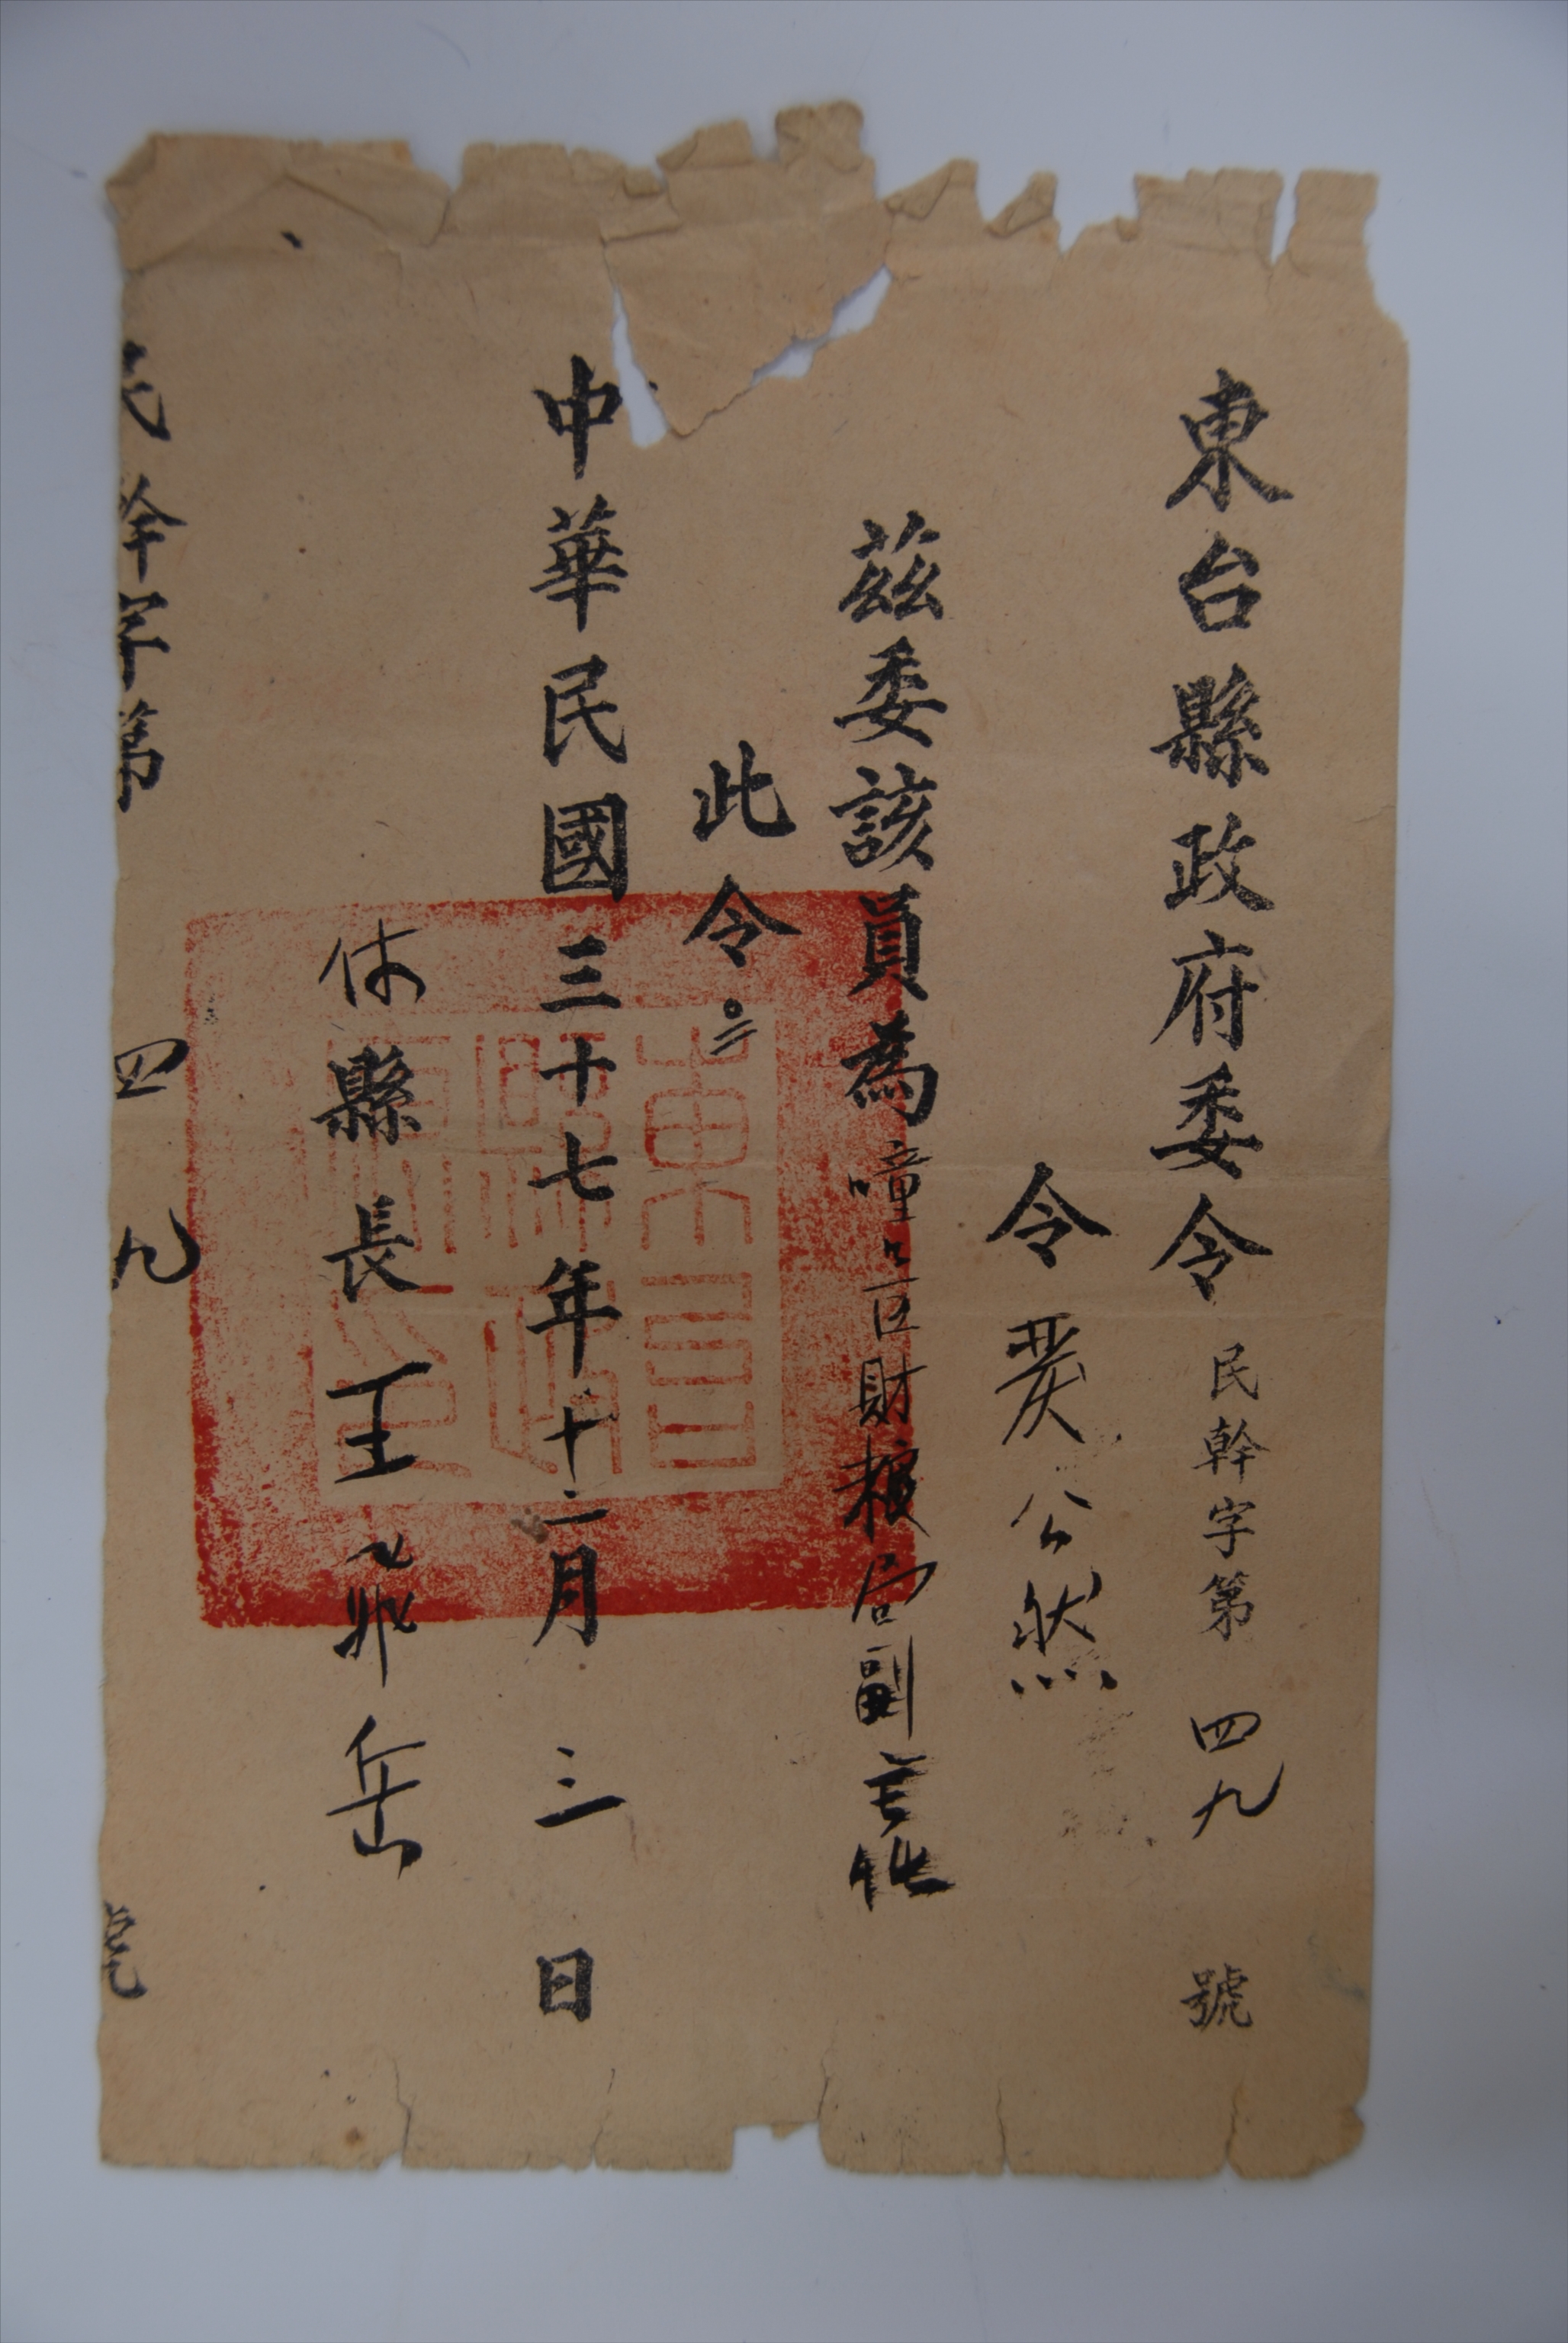 東台縣政府委令 民幹字第 四九 號
令 公然
茲委該員為 区財粮局副主任
此令
中華民國三十七年十二月三日
縣長王飛岳
民幹字第 四九 號